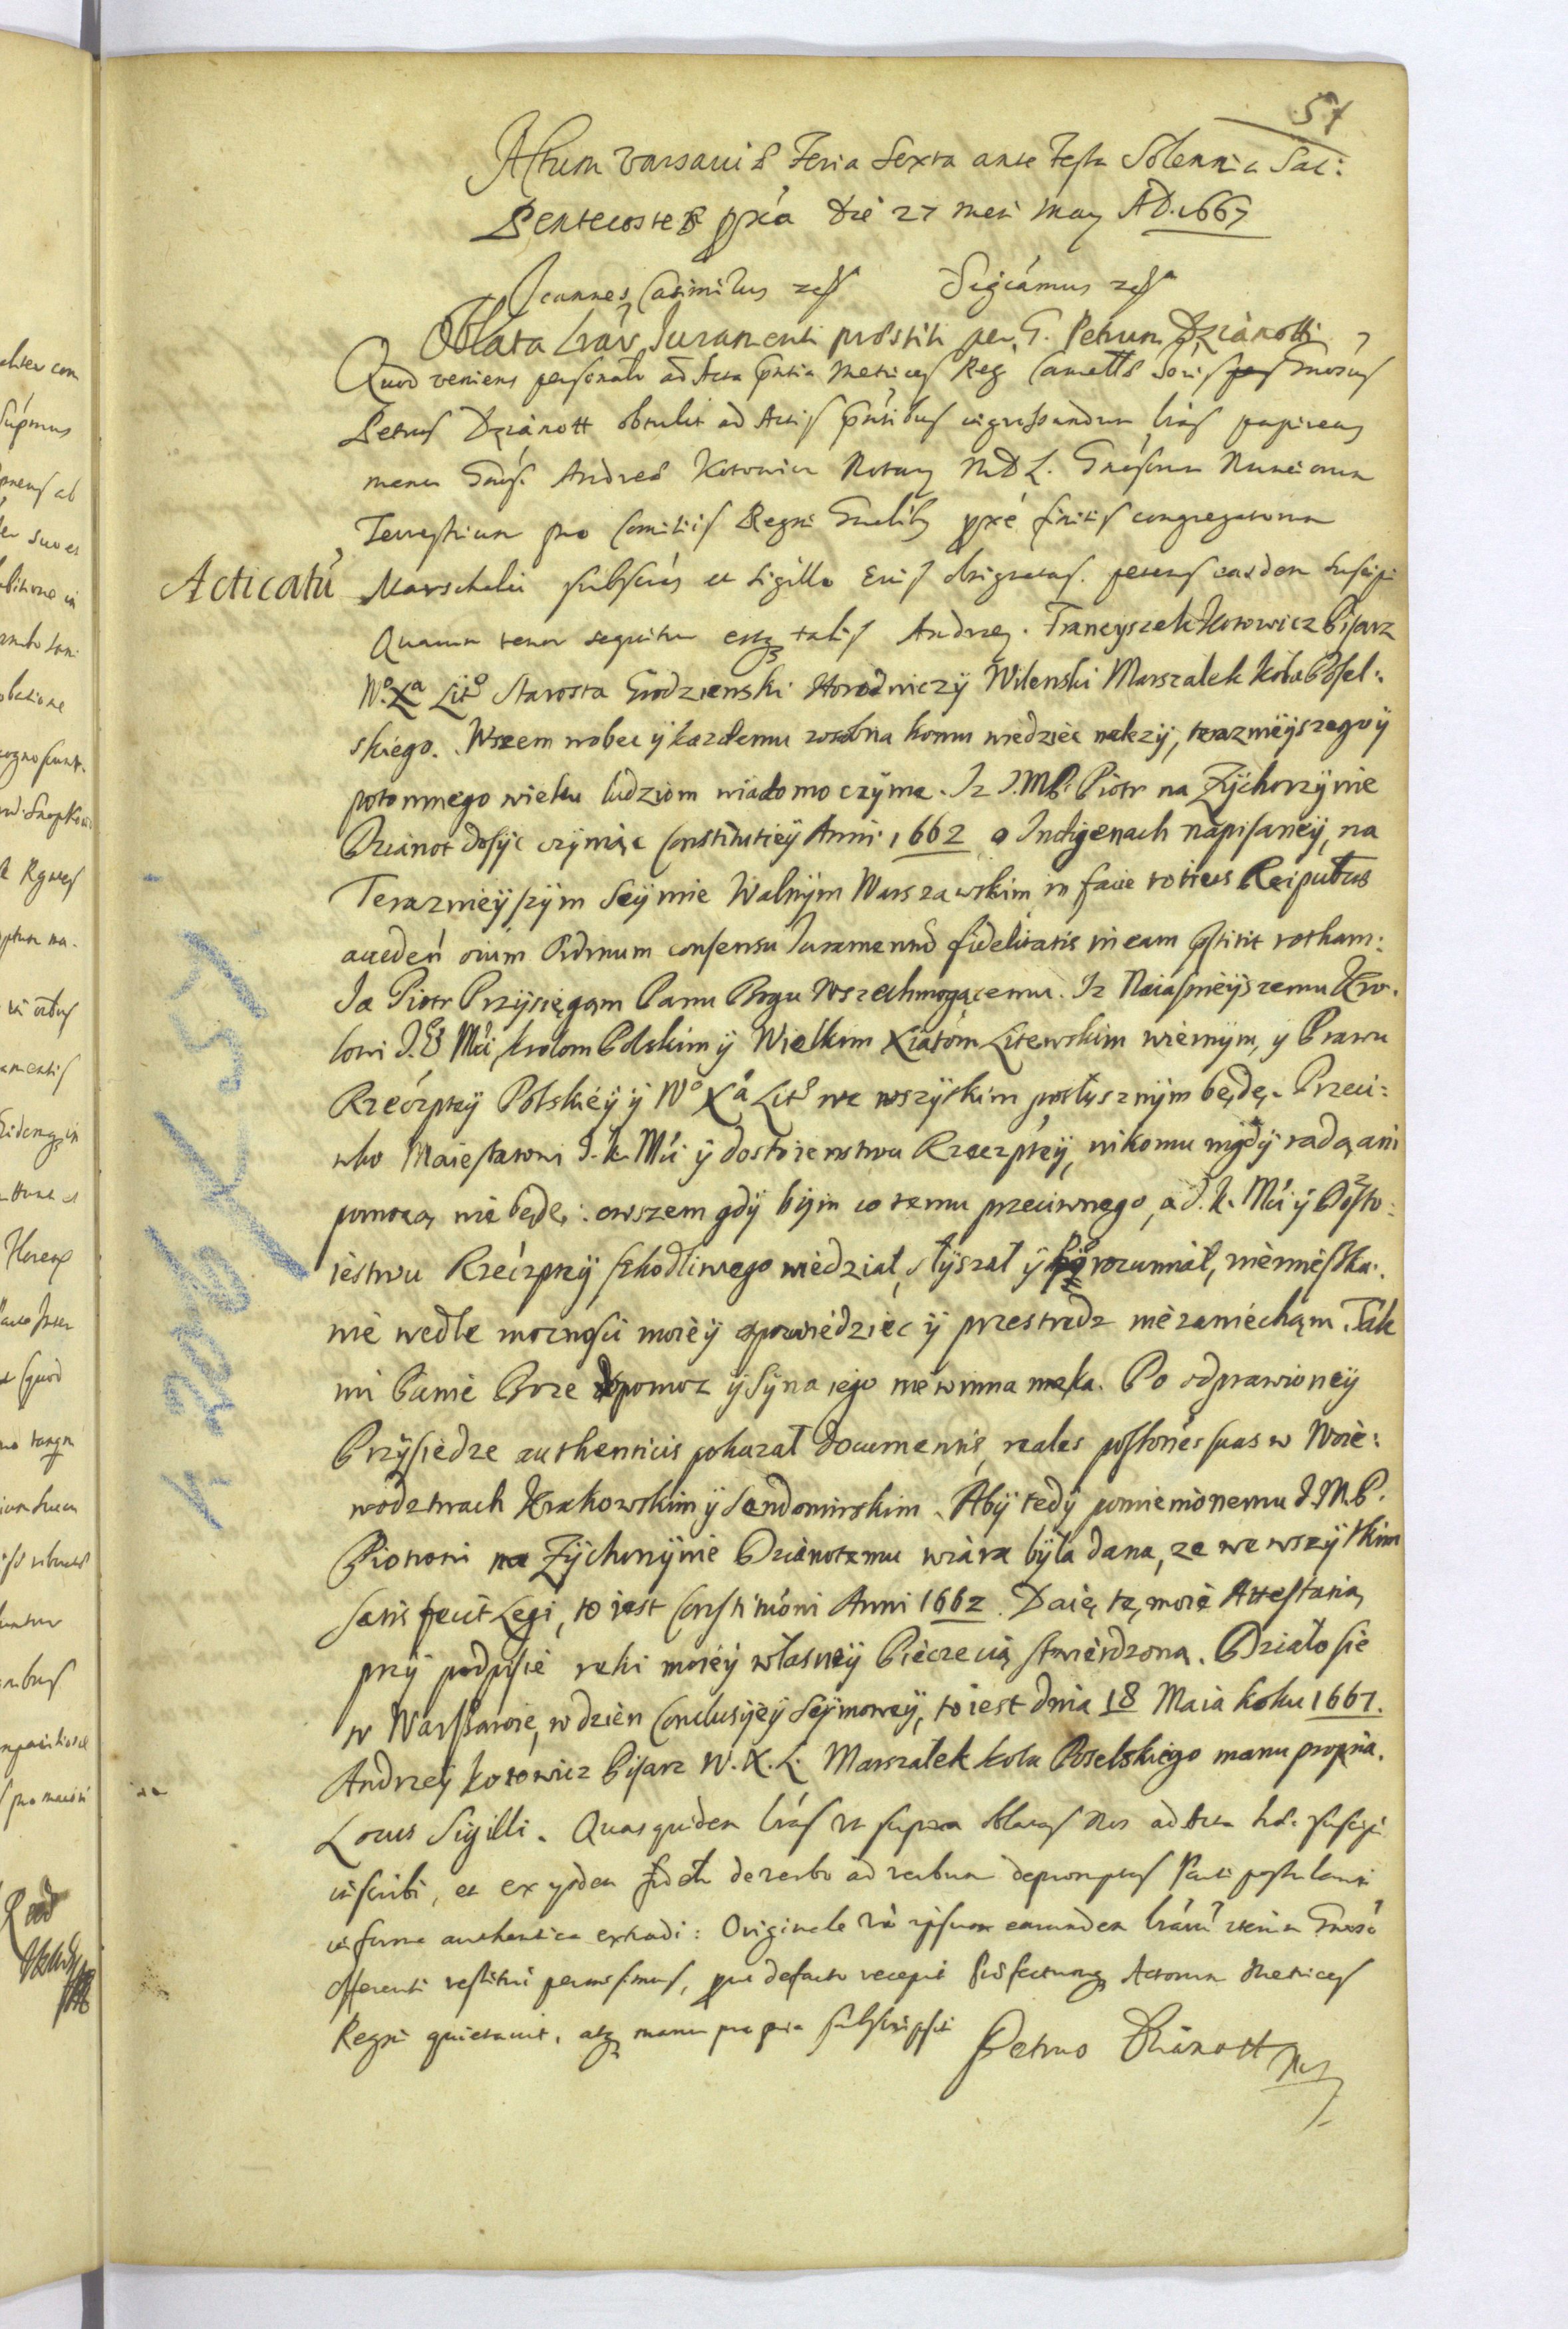 57
Actum Varsaviæ Feria Sexta ante Festa Solennia Sac:
Pentecostes pxa Die 27 Mesi May AD. 1667
Joannes Casimirus Sigiamus
Oblata Lrar Juramenti præstiti per G. Petrum Dzianotti
Quod veniens personalr ad Acta pntia Metrices Reg Cancell Gnosus
Petrus Dzianott obtulit ad Actis pntibus ingrossandum lras papireas
manu Gnosi Andreæ Kotowicz Notary M D L. Gnosum Nunciorum
Terrestrium pro Comitiis Regni Gnalibs pxe finitis congregatorum
Acticatu Marschalci subscrias et sigillo Eius obsignatas. petens easdem suscipi
Quarum tenor sequitur estq talis Andrzey. Francyszek Kotowicz Pisarz
Wo. Xa Lito Starosta Grodzienski Horodniczÿ Wilenski Marszałek Koła Posel:
skiego. Wszem wobec ÿ kazdemu zosobna komu wiedziec nalezÿ, terazniëÿszego ÿ
potomnego wieku ludziom wiadomo czÿnie. Iz J.MP. Piotr na Zÿchorzÿnie
Dzianot dosÿc czÿniąc Constitutiëÿ Anni 1662 o Indigenach napisanëÿ, na
Terazniëÿszÿm Seÿmie Walnÿm Warszawskim in facie totius Reiputæ
acceden oium Ordinum consensu Juramentum fidelitatis in eam pstitit rotham:
Ja Piotr Przÿsięgąm Panu Bogu Wszechmogącemu. Iz Naiasnieÿszemu Kro.
lowi J. E Mci, krolom Polskim ÿ Wielkim Xiażom Litewskim wiernÿm, ÿ Prawu
Rzeczptëÿ Polskiëÿ ÿ Wo Xa Lito we wszÿtkim posłusznÿm będę. Przeci:
wko Maiestatowi J. k. Mci ÿ dostoienstwu Rzeczptëÿ, nikomu nigdÿ radą ani
pomocą nie będę: owszem gdÿ bÿm co temu przeciwnego, a J. k. Mci ÿ Dosto:
iestwu Rzeczptëÿ szkodliwego wiedział, słÿszał ÿ porozumiał, niemieszka:
nie wedle moznosci moiëÿ opowiedziec ÿ przestrzedz niezaniecham. Tak
mi Panie Boze dopomoz ÿ Sÿna iego niewinna męka. Po odprawionëÿ
Przÿsiedze authenticis pokazał documentis, reales possiones suas w Woie:
wodztwach Krakowskim ÿ Sendomirskim. Abÿ tedÿ pomienionemu J.M.P.
Piotrowi na Zÿchorzÿnie Dzianotemu wiara bÿła dana, ze we wszÿtkim
satis fecit Legi, to iest Constitutioni Anni 1662. Daię tę moię Attestatią
przÿ podpisie ręki moiëÿ własnëÿ Pieczecią stwierdzoną. Działo sie
w Warszawie, w dzien Conclusÿëÿ Seÿmowëÿ, to iest dnia 18 Maia Roku 1667.
Andrzëÿ Kotowicz Pisarz W. X. L. Marszałek koła Poselskiego manu propria.
Locus Sigilli. Quas quidem lras ut supra oblatas Nos ad Acta suscipi
inscribi, et ex ysdem de verbo ad verbum depromptas Parti postulanti
in forma authentica extradi: Originale vo ipsum earundem lrarum
offerenti restitui permisimus, defacto recepit Actorum Metrices
Regni quietavit, atq manu propria subscripsit Petrus Dzianott
K. 206 K 57.